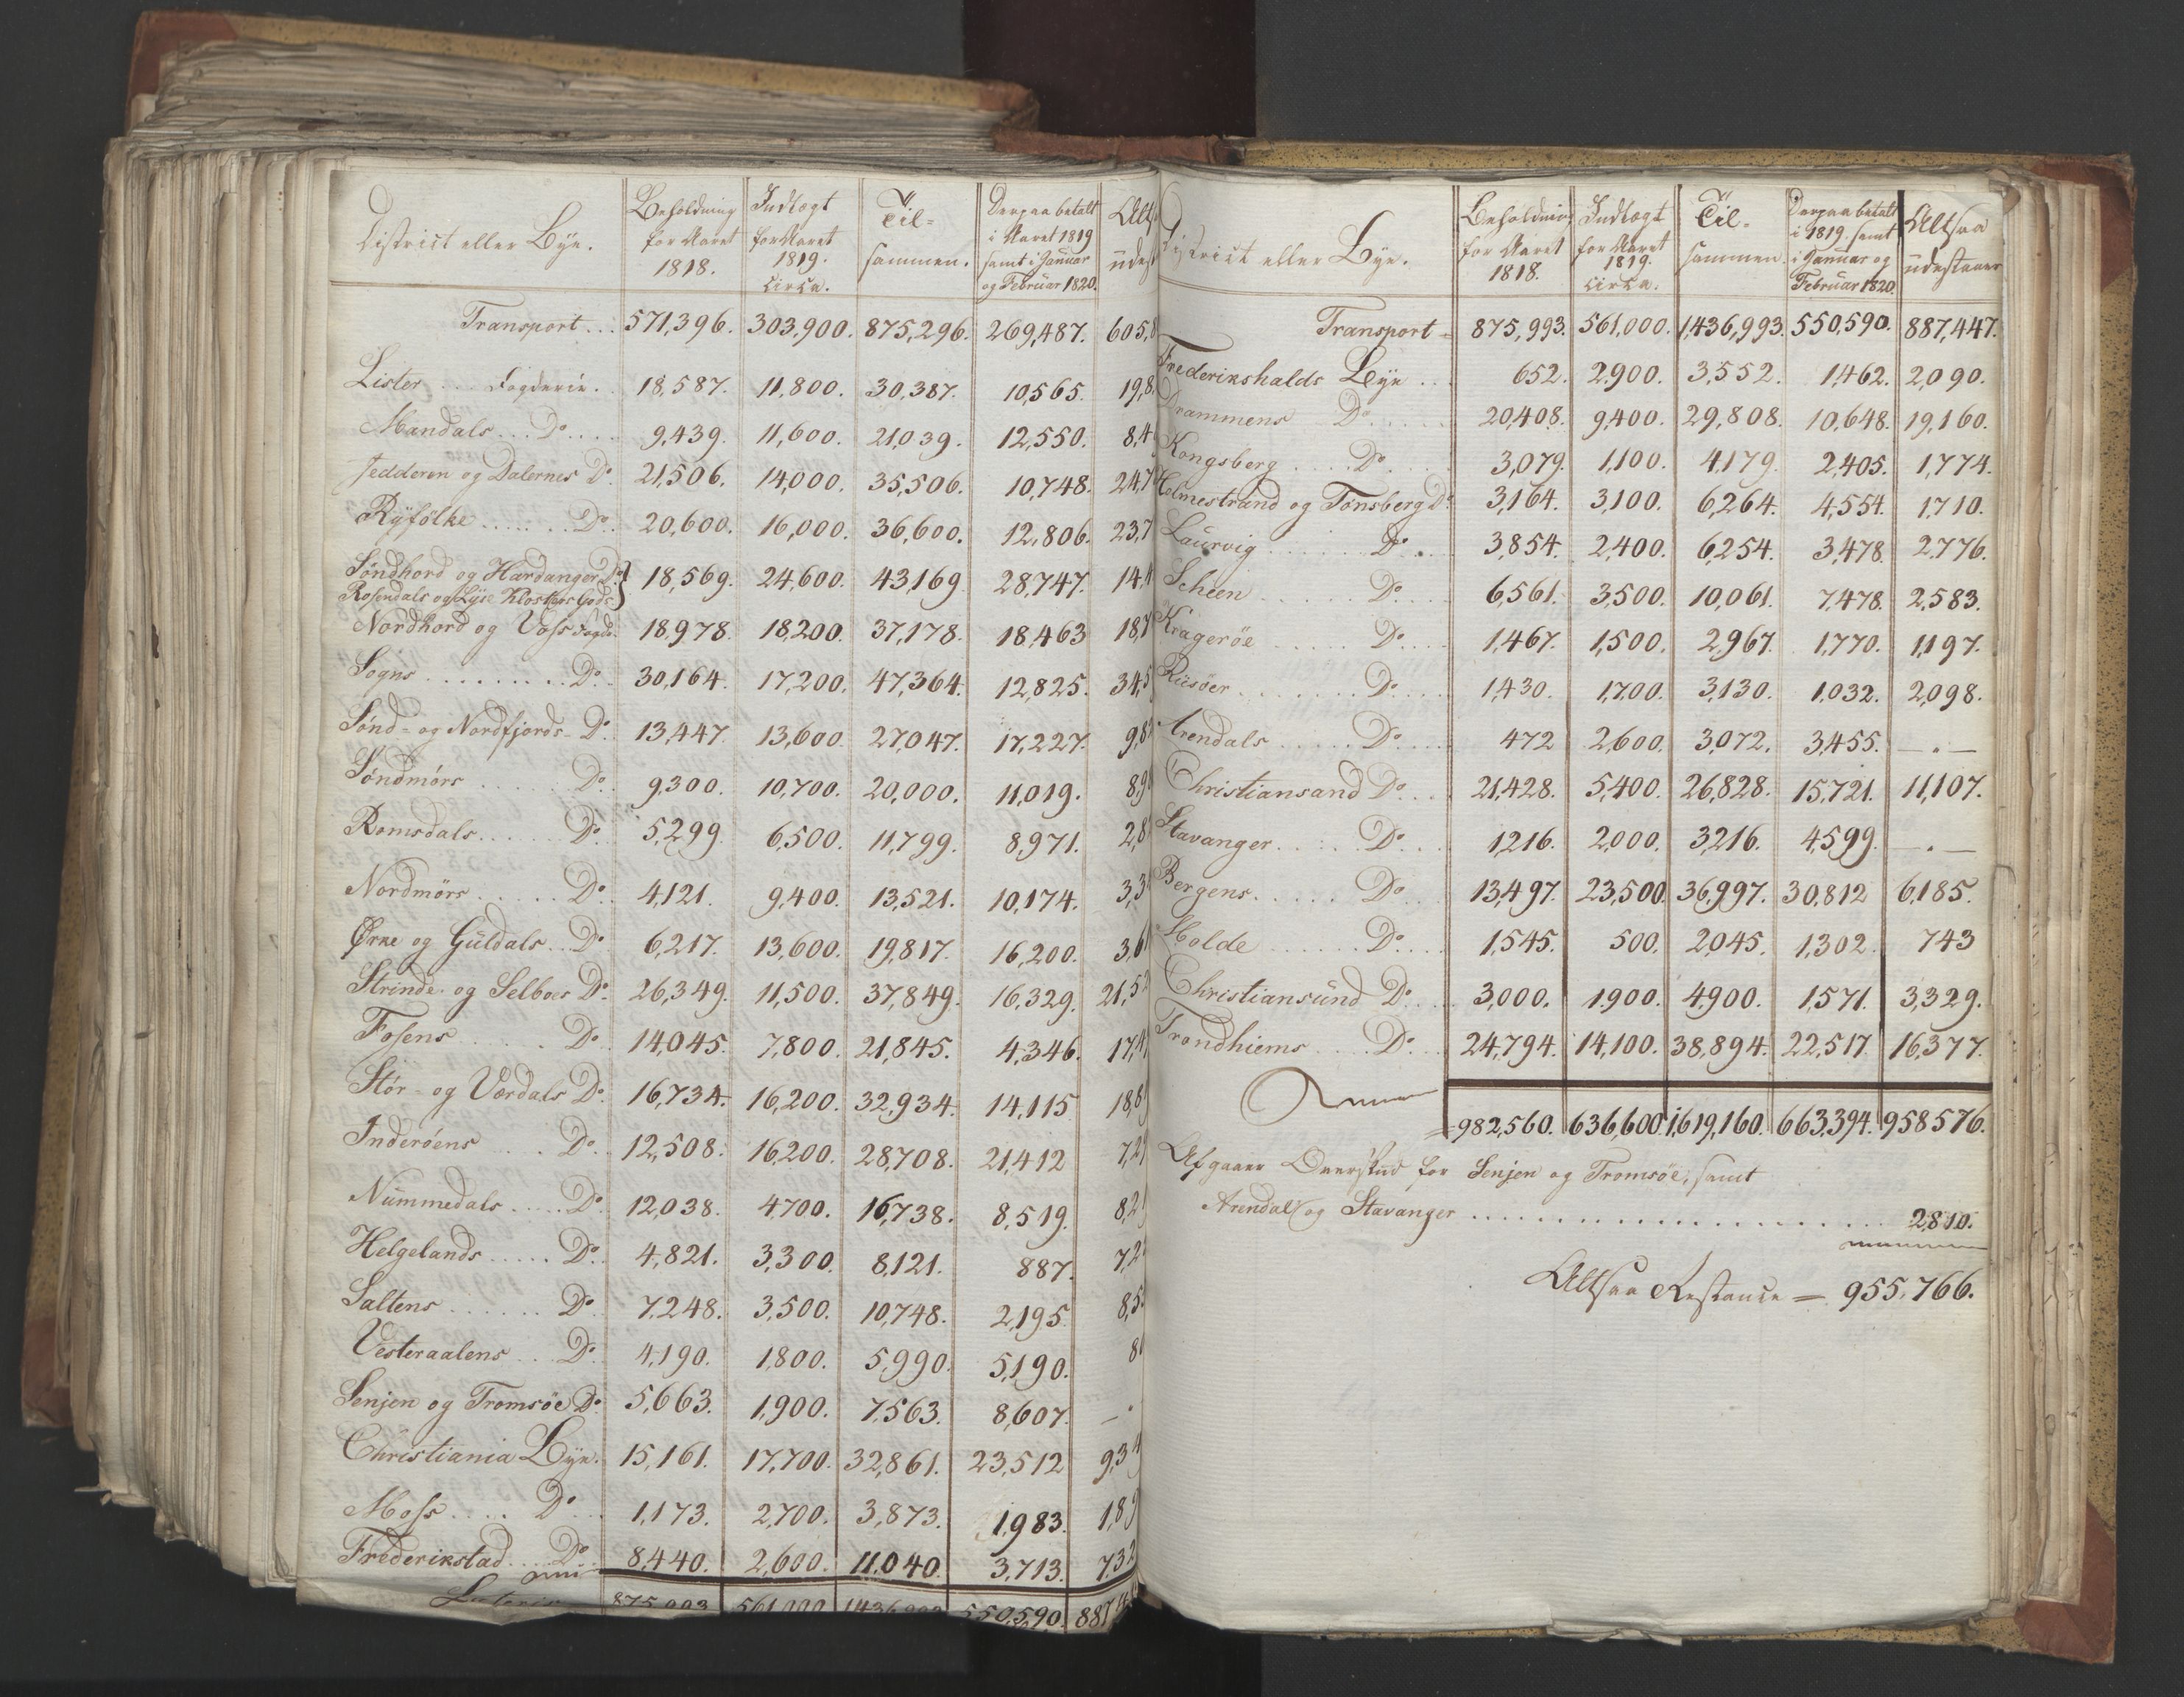 District eller Bye. Beholdning for Aaret 1818. Indlagt for Aaret 1819. circa. Til= sammen. Derpaa betalt i Aaret 1819 samt i Januar og Februar 1820.
Transport . . . 571,396. 303,900. 875,296. 269,487. 605,8
Lister . . . Fogderie. . 18,587. 11,800. 30,387. 10,565. 19,8
Mandals . . . Do . . . . 9,439. 11,600. 21,039. 12,550. 8,4
Jedderen og Dalernes Do. 21,506. 14,000. 35,506. 10,748. 24,7
Ryfölke . . . . . . . Do . 20,600. 16,000. 36,600. 12,806. 23,7
Söndhord og Hardanger Do } 18,569. 24,600. 43,169 28,747. 14,4
Rosendals og Lyse Klosters Gods
Nordhord og Voss Fogd. 18,978. 18,200. 37,178. 18,463 18,7
Sogns . . . . . . . . . Do . 30,164. 17,200. 47,364. 12,825. 34,5
Sönd= og Nordfjords= Do. 13,447. 13,600 27,047. 17,227. 9,8
Söndmörs . . . . . . Do. 9,300. 10,700. 20,000. 11,019. 8,9
Romsdals . . . . . . Do. 5,299. 6,500. 11,799. 8,971. 2,8
Nordmörs . . . . . . Do. 4,121. 9,400. 13,521. 10,174. 3,3
Örke og Guldals . . Do 6,217. 13,600. 19,817. 16,200. 3,6
Strinde= og Selboes Do. 26,349. 11,500. 37,849. 16,329. 21,52
Fosens . . . . . Do. 14,045. 7,800. 21,845. 4,346. 17,4
Stör= og Værdals Do. 16,734. 16,200. 32,934. 14,115 18,8
Inderöens . . . . Do. 12,508. 16,200. 28,708. 21,412 7,29
Nummedals . . . . . Do. 12,038. 4,700. 16,738. 8,519. 8,2
Helgelands . . . . . Do. 4,821. 3,300. 8,121. 887. 7,2
Saltens . . . . . . Do 7,248. 3,500. 10,748. 2,195. 8,5
Vesteraalens . . Do. 4,190. 1,800. 5,990. 5,190. 8
Senjen og Tromsöe Do. 5,663. 1,900. 7,563. 8,607. — .
Christiania Bye. 15,161. 17,700. 32,861. 23,512 9,34
Moss . . . . Do . . . 1,173. 2,700. 3,873. 1,983. 1,8
Frederikstad . . . Do. 8,440. 2,600. 11,040 3,713. 7,32
Lateris 875,993 561,000 1436,993 550,590. 887,4
District eller Bye. Beholdning for Aaret 1818. Indlagt for Aaret 1819. circa. Til= sammen. Derpaa betalt i 1819. samt i Januar og Februar 1820. Altsaa udestaaer
Transport = 875,993. 561,000. 1,436,993. 550,590. 887,447.
Frederikshalds Bye . . . 652. 2,900. 3,552. 1,462. 2,090.
Drammens Do . . . . . 20,408. 9,400. 29,808. 10,648. 19,160.
Kongsberg . . . . Do . . . . 3,079. 1,100. 4,179. 2,405. 1,774.
Holmestrand og Tonsberg Do. 3,164. 3,100. 6,264. 4,554. 1,710.
Laurvig . . . . . . Do . . . 3,854. 2,400. 6,254. 3,478. 2,776.
Scheen . . . . . . Do . . . 6,561. 3,500. 10,061. 7,478. 2,583.
Krageröe . . . . . Do . . . 1,467. 1,500. 2,967. 1,770. 1,197.
Riisöer . . . . . . . Do . . . 1,430. 1,700. 3,130. 1,032. 2,098.
Arendals . . . . . Do . . . . 472 2,600. 3,072. 3,455. — . —
Christiansand Do . . . 21,428. 5,400. 26,828. 15,721. 11,107.
Stavanger . . . . . Do . . . 1,216. 2,000. 3,216. 4,599. — . —
Bergens . . . . . Do . . . 13,497. 23,500. 36,997. 30,812 6,185.
Molde . . . . . . . Do . . . 1,545. 500. 2,045. 1,302. 743
Christiansund Do . . . 3,000. 1,900. 4,900. 1,571. 3,329.
Trondhiems . . . Do . . . 24,794. 14,100. 38,894. 22,517. 16,377.
= 982,560. 636,600. 1,619,160. 663,394. 958576.
Afgaaer Overskud for Senjen og Tromsöe, samt
Arendal og Stavanger . . . . . . . . . . . . . . . . . 2,810.
Altsaa Restance = 955,766.